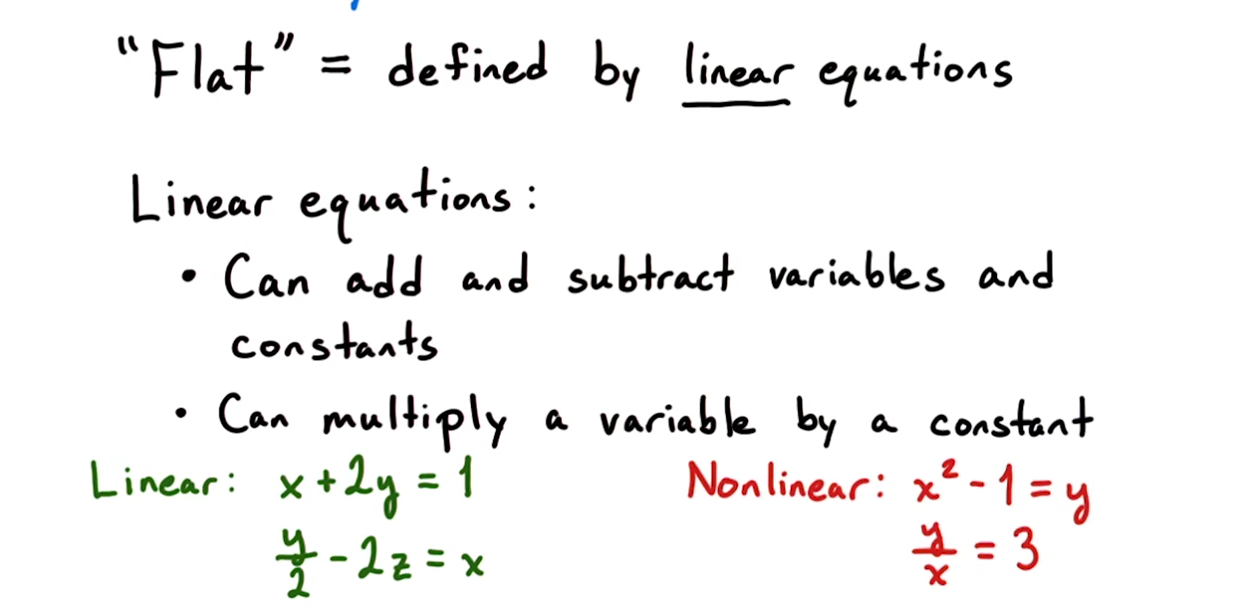 "Flat" = defined by linear equations
Linear equations:
• Can add and subtract variables and
constants
• Can multiply a variable by a constant
Linear: x + 2y = 1
y/2 - 2z = x
Nonlinear: x² - 1 = y
y/x = 3